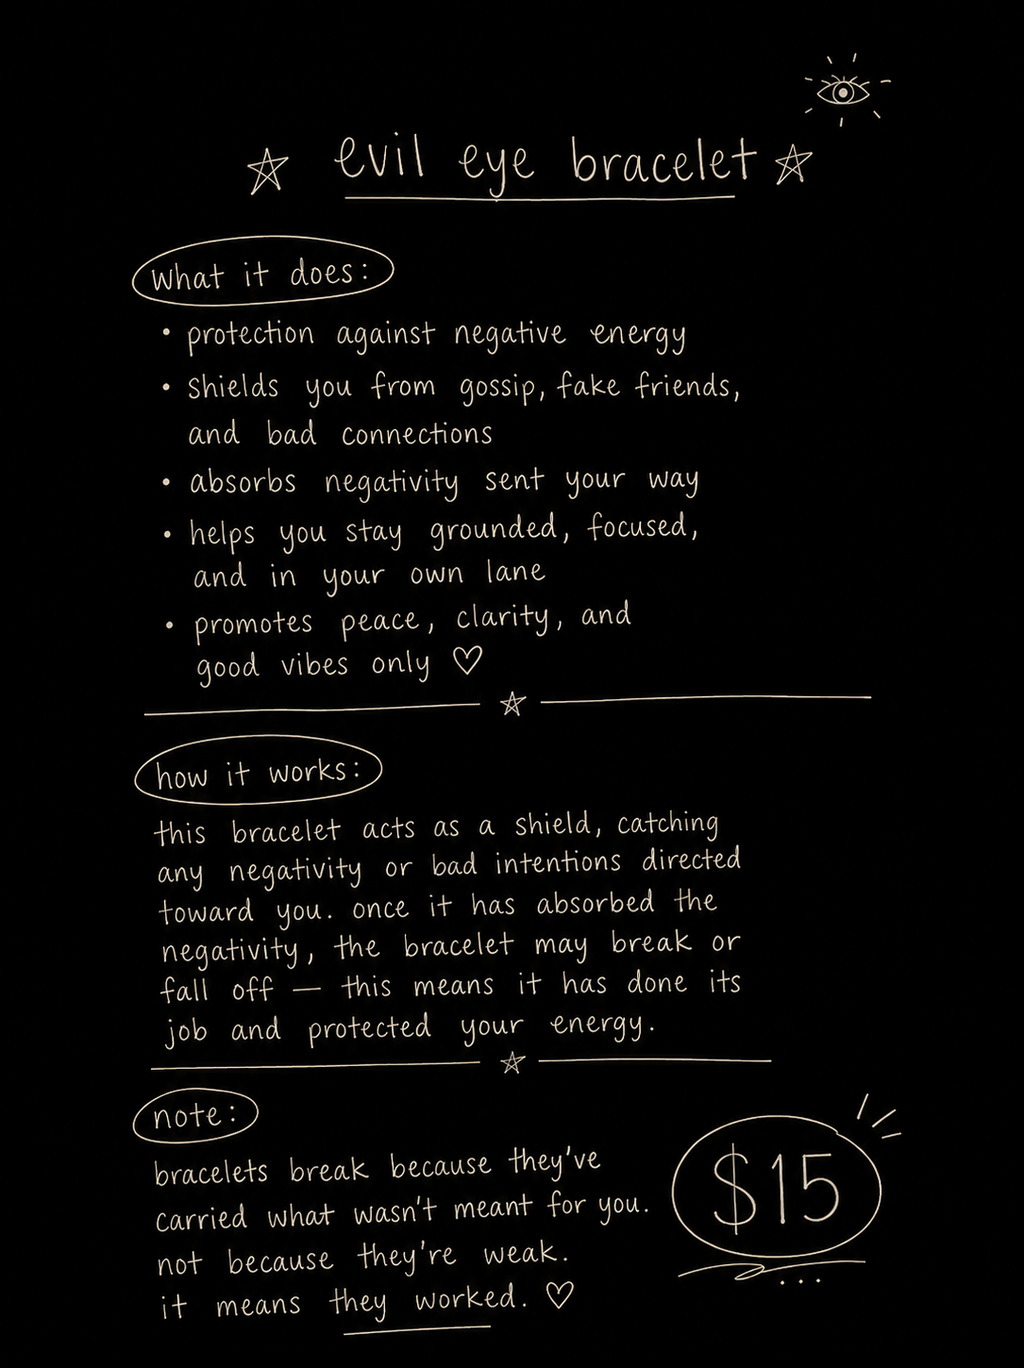 evil eye bracelet
what it does:
• protection against negative energy
• shields you from gossip, fake friends,
and bad connections
• absorbs negativity sent your way
• helps you stay grounded, focused,
and in your own lane
• promotes peace, clarity, and
good vibes only ♡
how it works:
this bracelet acts as a shield, catching
any negativity or bad intentions directed
toward you. once it has absorbed the
negativity, the bracelet may break or
fall off — this means it has done its
job and protected your energy.
note:
bracelets break because they've
carried what wasn't meant for you.
not because they're weak.
it means they worked. ♡
$15